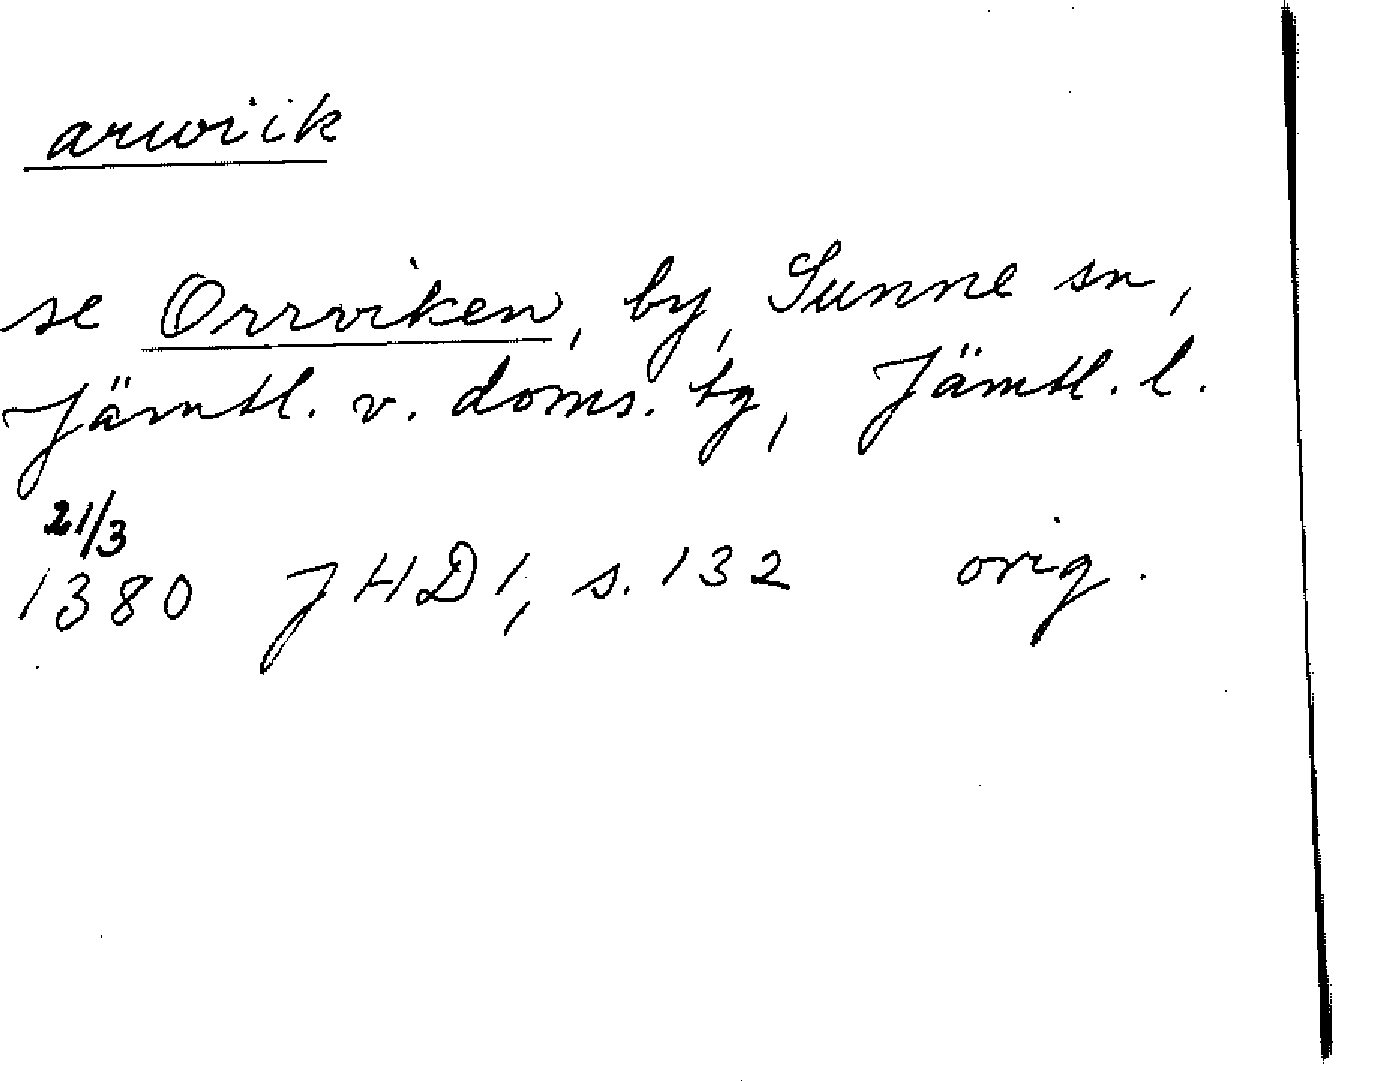 arwiik
se Orrviken, by, Sunne sn,
Jämtl. v. doms. tg, Jämtl. l.
21/3
1380 JHD 1, s. 132 orig.